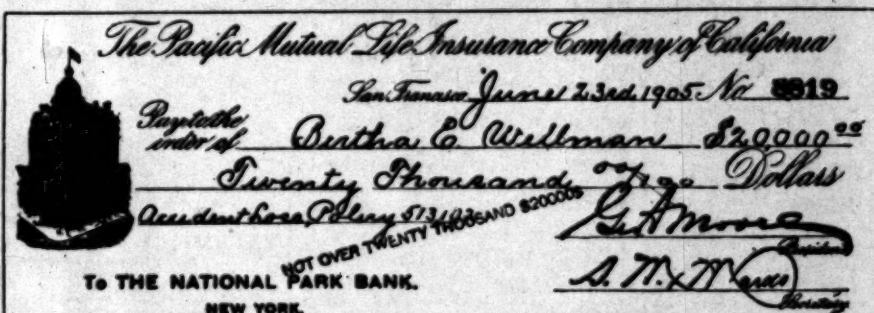 The Pacific Mutual Life Insurance Company of California
San Francisco June 23rd 1905 No 8819
Pay to the
order of Bertha E Wellman $20,000 00
Twenty Thousand 00/100 Dollars
Accident Loss Policy
NOT OVER TWENTY THOUSAND $20000$
Geo A Moore
President
To THE NATIONAL PARK BANK.
S. M. Marks
Secretary
NEW YORK.